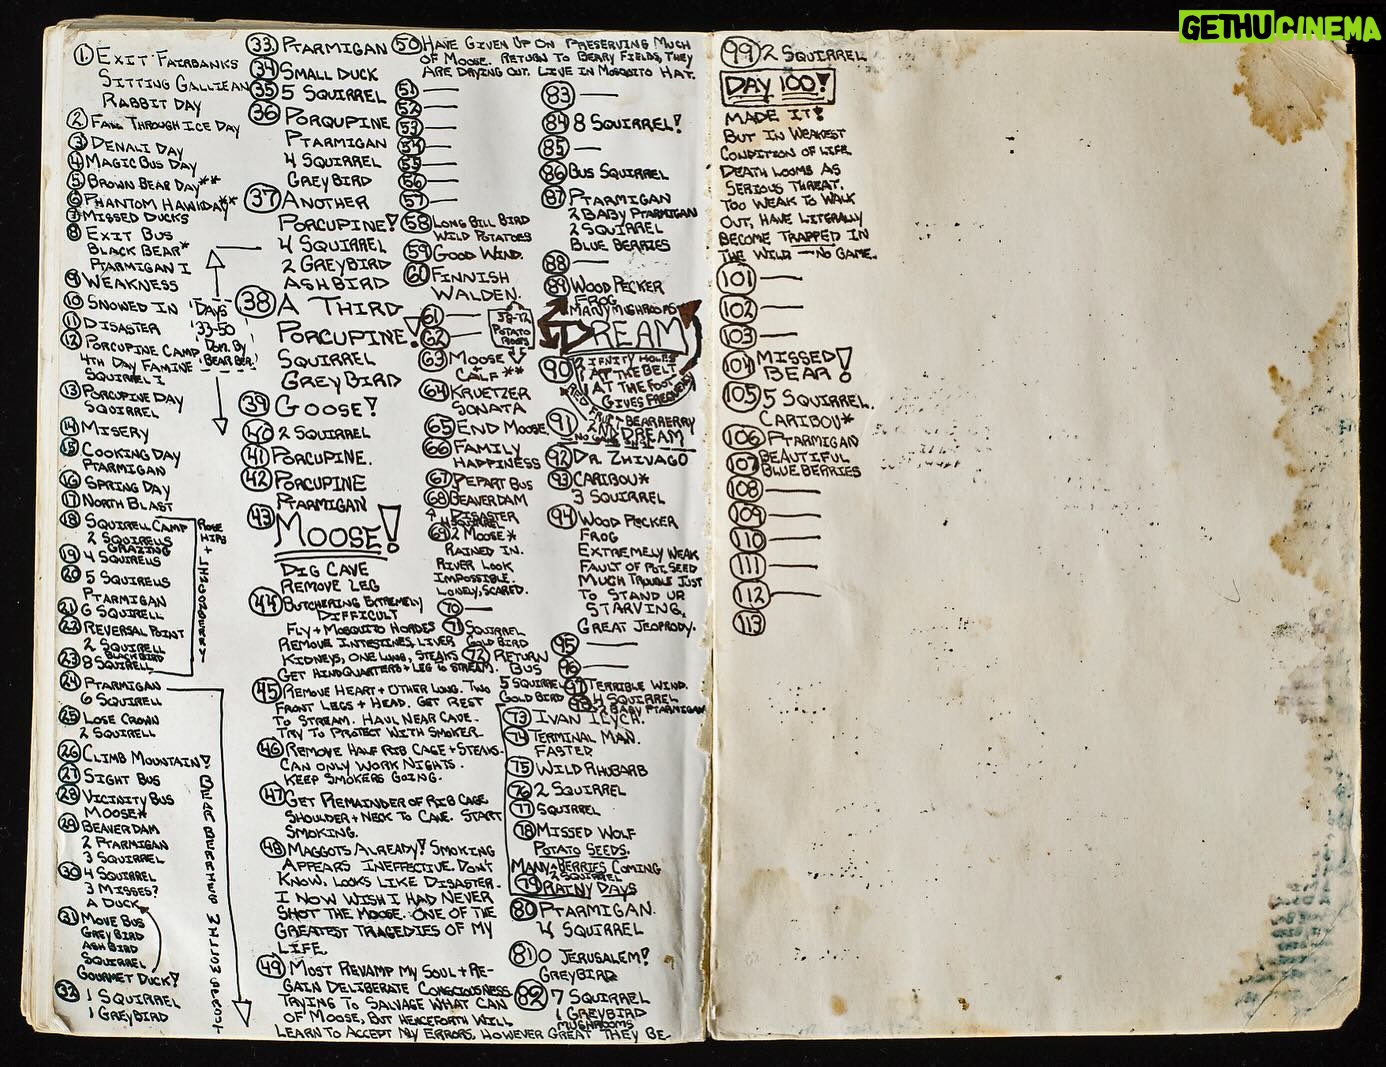 GETHUCINEMA
① EXIT FAIRBANKS
SITTING GALLIEAN
RABBIT DAY
② FALL THROUGH ICE DAY
③ DENALI DAY
④ MAGIC BUS DAY
⑤ BROWN BEAR DAY**
⑥ PHANTOM HAWKDAY**
⑦ MISSED DUCKS
⑧ EXIT BUS
BLACK BEAR*
PTARMIGAN I
⑨ WEAKNESS
⑩ SNOWED IN
⑪ DISASTER
⑫ PORCUPINE CAMP
4TH DAY FAMINE
SQUIRREL I
⑬ PORCUPINE DAY
SQUIRREL
⑭ MISERY
⑮ COOKING DAY
PTARMIGAN
⑯ SPRING DAY
⑰ NORTH BLAST
⑱ SQUIRELL CAMP
2 SQUIRELLS
GRAZING
⑲ 4 SQUIRELLS
⑳ 5 SQUIRELLS
PTARMIGAN
㉑ 6 SQUIRELL
㉒ REVERSAL POINT
2 SQUIRELL
BLACKBIRD
㉓ 8 SQUIRELL
ROSE HIPS + LINGONBERRY
㉔ PTARMIGAN
6 SQUIRELL
㉕ LOSE CROWN
2 SQUIRELL
㉖ CLIMB MOUNTAIN!
㉗ SIGHT BUS
㉘ VICINITY BUS
MOOSE*
㉙ BEAVER DAM
2 PTARMIGAN
3 SQUIRREL
㉚ 4 SQUIRREL
3 MISSES?
A DUCK
㉛ MOVE BUS
GREY BIRD
ASH BIRD
SQUIRREL
GOURMET DUCK!
㉜ 1 SQUIRREL
1 GREYBIRD
DAYS
33-50
DOM. BY
BEAR BER.
㉝ PTARMIGAN
㉞ SMALL DUCK
㉟ 5 SQUIRREL
㊱ PORQUPINE
PTARMIGAN
4 SQUIRREL
GREYBIRD
㊲ ANOTHER
PORCUPINE!
4 SQUIRREL
2 GREYBIRD
ASHBIRD
㊳ A THIRD
PORCUPINE!
SQUIRREL
GREYBIRD
㊴ GOOSE!
㊵ 2 SQUIRREL
㊶ PORCUPINE.
㊷ PORCUPINE
PTARMIGAN
㊸ MOOSE!
DIG CAVE
REMOVE LEG
㊹ BUTCHERING EXTREMELY
DIFFICULT
FLY + MOSQUITO HORDES
REMOVE INTESTINES, LIVER
KIDNEYS, ONE LUNG, STEAKS
GET HINDQUARTERS + LEG TO STREAM.
㊺ REMOVE HEART + OTHER LUNG. TWO
FRONT LEGS + HEAD. GET REST
TO STREAM. HAUL NEAR CAVE.
TRY TO PROTECT WITH SMOKER
㊻ REMOVE HALF RIB CAGE + STEAKS.
CAN ONLY WORK NIGHTS.
KEEP SMOKERS GOING.
㊼ GET REMAINDER OF RIB CAGE
SHOULDER + NECK TO CAVE. START
SMOKING.
㊽ MAGGOTS ALREADY! SMOKING
APPEARS INEFFECTIVE. DON'T
KNOW. LOOKS LIKE DISASTER.
I NOW WISH I HAD NEVER
SHOT THE MOOSE. ONE OF THE
GREATEST TRAGEDIES OF MY
LIFE.
㊾ MOST REVAMP MY SOUL + RE-
GAIN DELIBERATE CONSCIOUSNESS.
TRYING TO SALVAGE WHAT CAN
OF MOOSE, BUT HENCEFORTH WILL
LEARN TO ACCEPT MY ERRORS, HOWEVER GREAT THEY BE-
㊿ HAVE GIVEN UP ON PRESERVING MUCH
OF MOOSE. RETURN TO BERRY FIELDS, THEY
ARE DRYING OUT. LIVE IN MOSQUITO HAT.
51 —
52 —
53 —
54 —
55 —
56 —
57 —
58 LONG BILL BIRD
WILD POTATOES
59 GOOD WIND.
60 FINNISH
WALDEN.
61 —
62 —
58-72
POTATO
ROOTS
63 MOOSE
CALF**
64 KRUETZER
SONATA
65 END MOOSE
66 FAMILY
HAPPINESS
67 DEPART BUS
68 BEAVERDAM
DISASTER
4 SQUIRREL
69 2 MOOSE*
RAINED IN.
RIVER LOOK
IMPOSSIBLE.
LONELY, SCARED.
70 —
71 SQUIRREL
GOLD BIRD
72 RETURN
BUS
5 SQUIRREL
GOLD BIRD
73 IVAN ILYCH.
74 TERMINAL MAN.
FASTED
75 WILD RHUBARB
76 2 SQUIRREL
77 SQUIRREL
78 MISSED WOLF
POTATO SEEDS.
MANY BERRIES COMING
2 SQUIRREL
79 RAINY DAYS
80 PTARMIGAN.
4 SQUIRREL
81 O JERUSALEM!
GREYBIRD
82 7 SQUIRREL
1 GREYBIRD
MUSHROOMS
83 —
84 8 SQUIRREL!
85 —
86 BUS SQUIRREL
87 PTARMIGAN
2 BABY PTARMIGAN
2 SQUIRREL
BLUE BERRIES
88 —
89 WOOD PECKER
FROG
MANY MUSHROOMS
DREAM
90
AT THE BELT
AT THE FOOT
91 BEARBERRY
2ND DREAM
92 DR. ZHIVAGO
93 CARIBOU*
3 SQUIRREL
94 WOOD PECKER
FROG
EXTREMELY WEAK
FAULT OF POT. SEED
MUCH TROUBLE JUST
TO STAND UP
STARVING.
GREAT JEOPRODY.
95 —
96 —
97 TERRIBLE WIND.
98 4 SQUIRREL
2 BABY PTARMIGAN
BEAR BERRIES
99 2 SQUIRREL
DAY 100!
MADE IT!
BUT IN WEAKEST
CONDITION OF LIFE.
DEATH LOOMS AS
SERIOUS THREAT.
TOO WEAK TO WALK
OUT, HAVE LITERALLY
BECOME TRAPPED IN
THE WILD — NO GAME.
101 —
102 —
103 —
104 MISSED
BEAR!
105 5 SQUIRREL.
CARIBOU*
106 PTARMIGAN
107 BEAUTIFUL
BLUE BERRIES
108 —
109 —
110 —
111 —
112 —
113